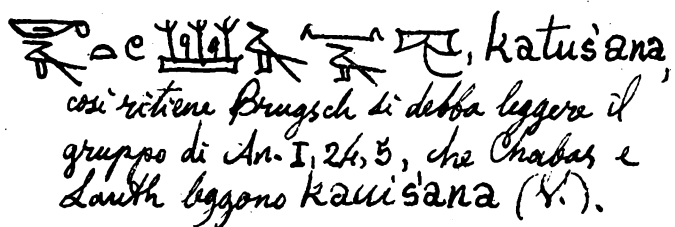 , katuśana,
così ritiene Brugsch si debba leggere il
gruppo di An. I, 24, 5, che Chabas e
Lauth leggono kauiśana (V.).